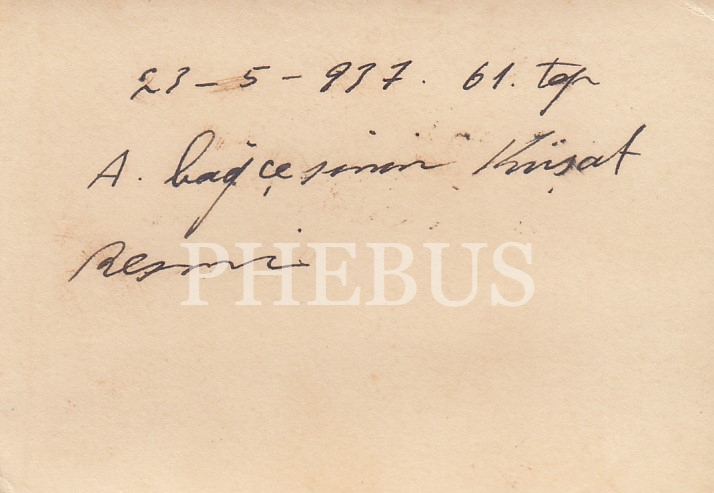 23 - 5 - 937. 61. top
A. bağçesinin Küşat
Resmi
PHEBUS